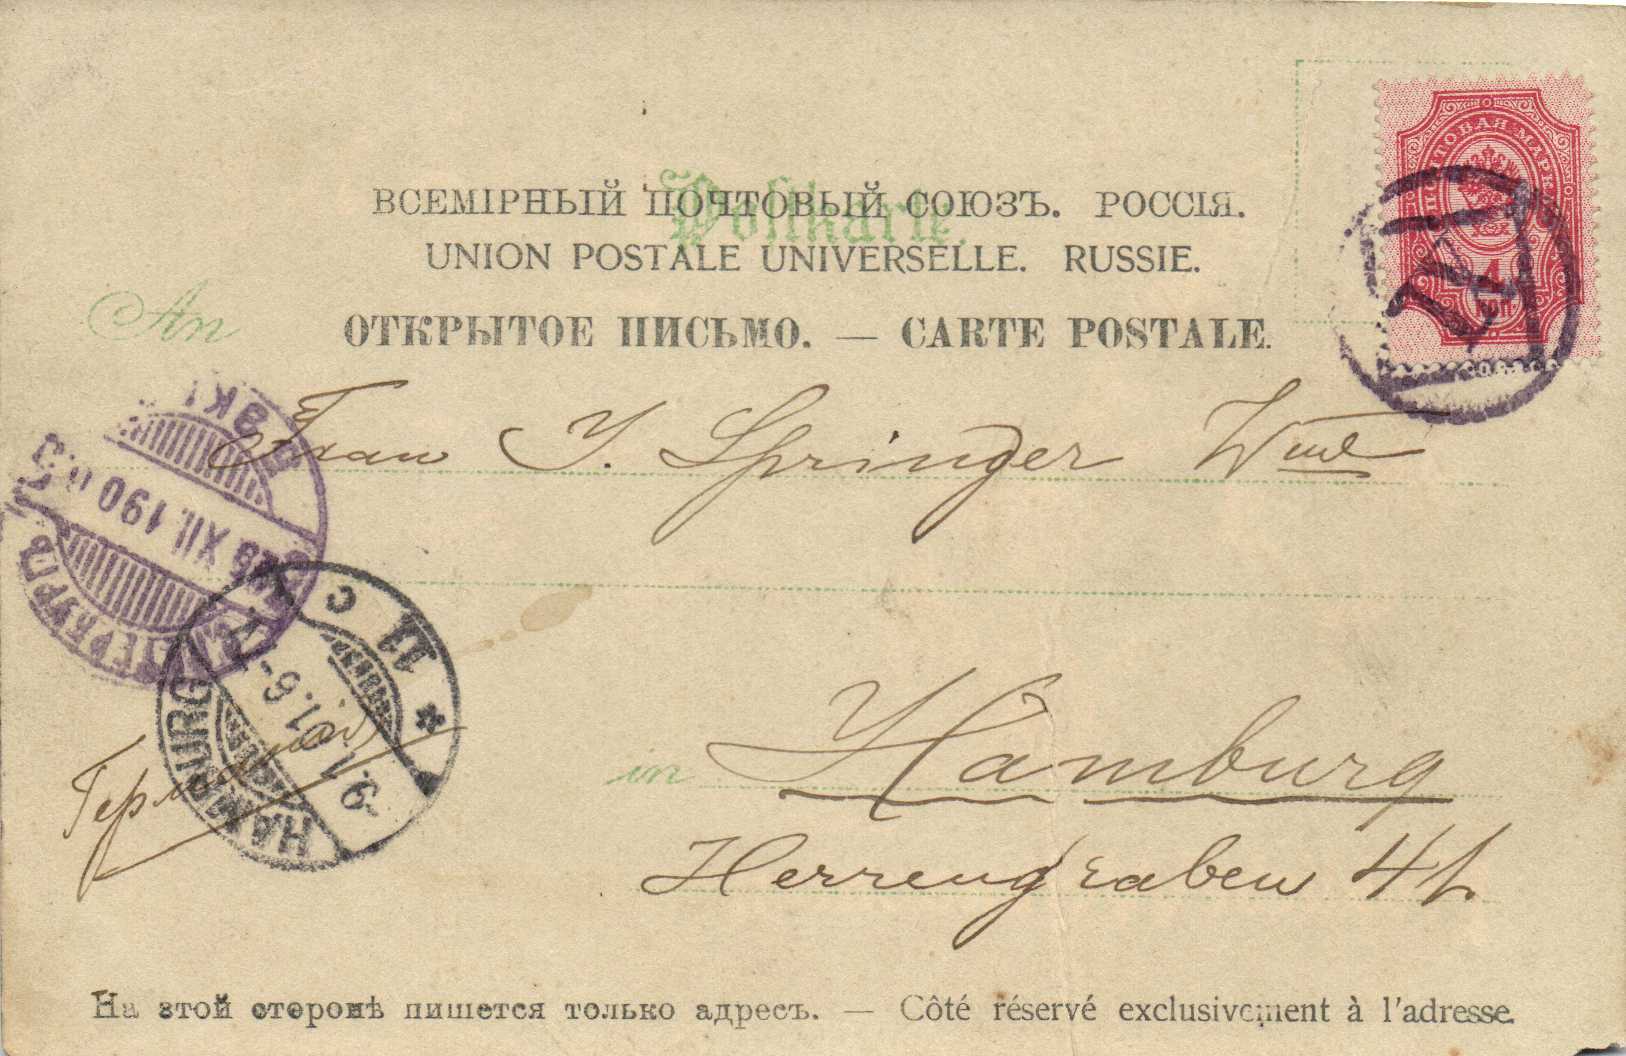 ВСЕМІРНЫЙ ПОЧТОВЫЙ СОЮЗЪ. РОССІЯ.
Postkarte.
UNION POSTALE UNIVERSELLE. RUSSIE.
An
ОТКРЫТОЕ ПИСЬМО. — CARTE POSTALE.
ПОЧТОВАЯ МАРКА
4
КОП.
Frau J. Springer Wwe
28 XII. 190
ПЕТЕРБУРГЪ
HAMBURG
11 c
9.1.01.6-7
in Hamburg
Herrengraben
На этой сторонѣ пишется только адресъ. — Côté réservé exclusivement à l'adresse.